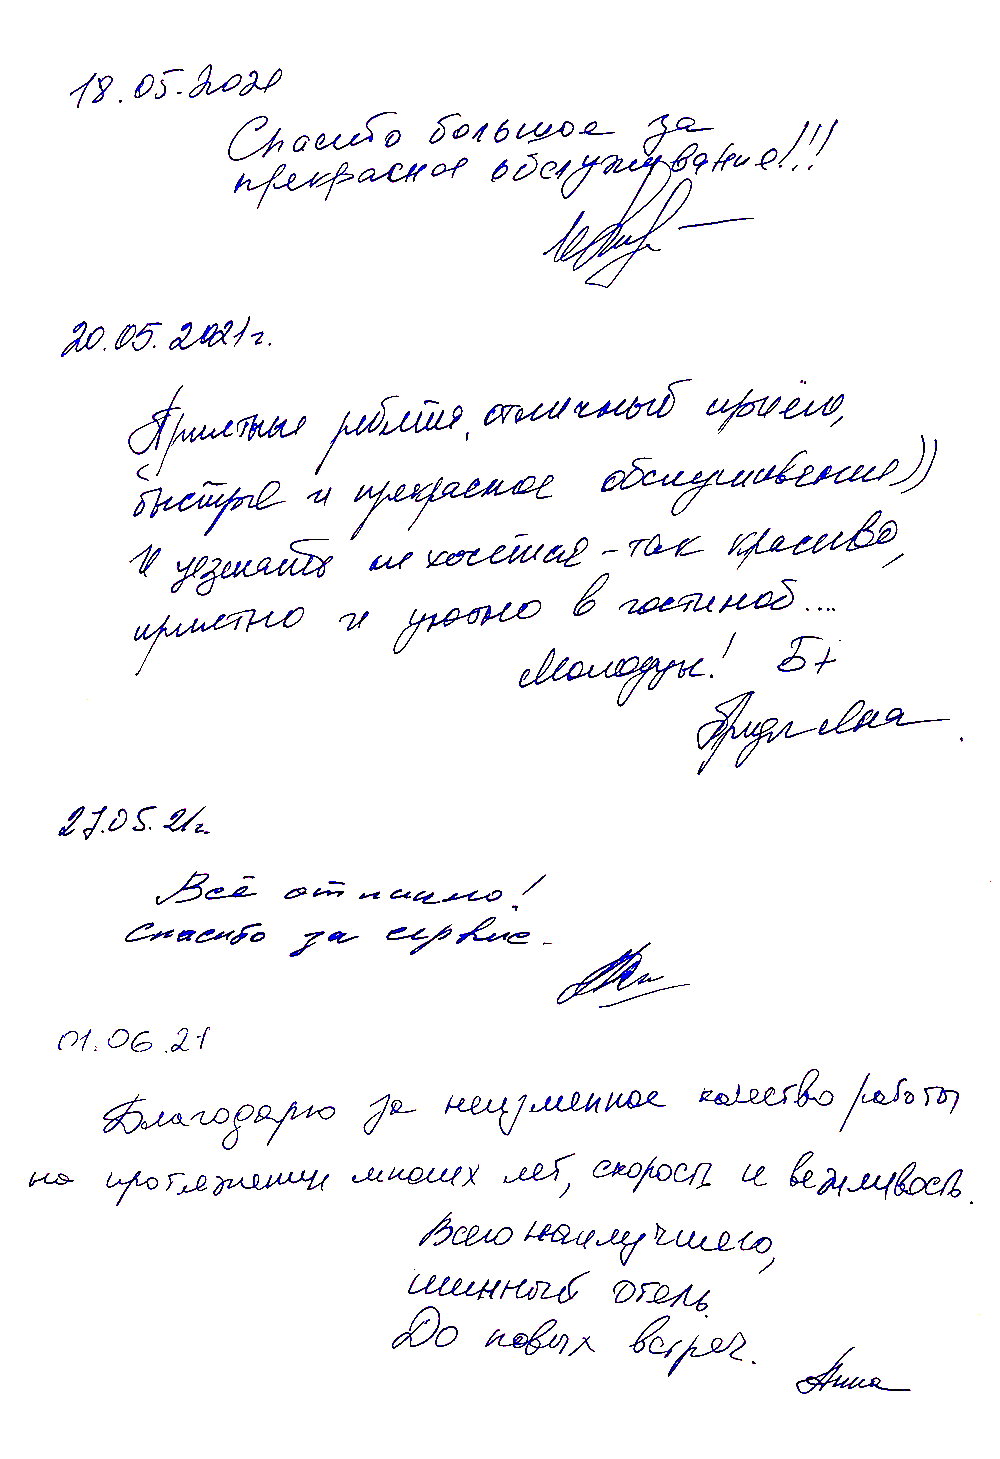 18.05.2021
Спасибо большое за
прекрасное обслуживание!!!
20.05.2021г.
Приятные ребята, отличный приём,
быстрые и прекрасное обслуживание))
И уезжать не хочется - так красиво,
приятно и уютно в гостиной....
Молодцы! 5+
27.05.21г.
Всё отлично!
Спасибо за сервис.
01.06.21
Благодарю за неизменное качество работы
на протяжении многих лет, скорость и вежливость.
Всего наилучшего,
шинный отель.
До новых встреч.
Анна